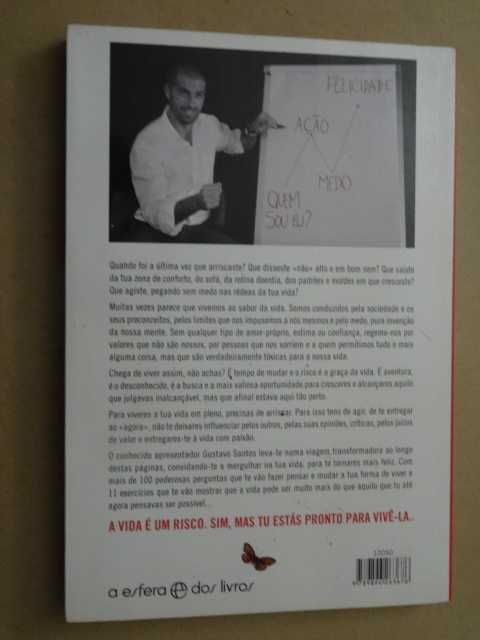 FELICIDADE
AÇÃO
MEDO
QUEM
SOU EU?
Quando foi a última vez que arriscaste? Que disseste «não» alto e em bom som? Que saíste
da tua zona de conforto, do sofá, da rotina doentia, dos padrões e moldes em que cresceste?
Que agiste, pegando sem medo nas rédeas da tua vida?
Muitas vezes parece que vivemos ao sabor da vida. Somos conduzidos pela sociedade e os
seus preconceitos, pelos limites que nos impusemos a nós mesmos e pelo medo, pura invenção
da nossa mente. Sem qualquer tipo de amor-próprio, estima ou confiança, regemo-nos por
valores que não são nossos, por pessoas que nos sorriem e a quem permitimos tudo e mais
alguma coisa, mas que são verdadeiramente tóxicas para a nossa vida.
Chega de viver assim, não achas? É tempo de mudar e o risco é a graça da vida. É aventura,
é o desconhecido, é a busca e a mais valiosa oportunidade para cresceres e alcançares aquilo
que julgavas inalcançável, mas que afinal estava aqui tão perto.
Para viveres a tua vida em pleno, precisas de arriscar. Para isso tens de agir, de te entregar
ao «agora», não te deixares influenciar pelos outros, pelas suas opiniões, críticas, pelos juízos
de valor e entregares-te à vida com paixão.
O conhecido apresentador Gustavo Santos leva-te numa viagem transformadora ao longo
destas páginas, convidando-te a mergulhar na tua vida, para te tornares mais feliz. Com
mais de 100 poderosas perguntas que te vão fazer pensar e mudar a tua forma de viver e
11 exercícios que te vão mostrar que a vida pode ser muito mais do que aquilo que tu até
agora pensavas ser possível...
A VIDA É UM RISCO. SIM, MAS TU ESTÁS PRONTO PARA VIVÊ-LA.
a esfera dos livros